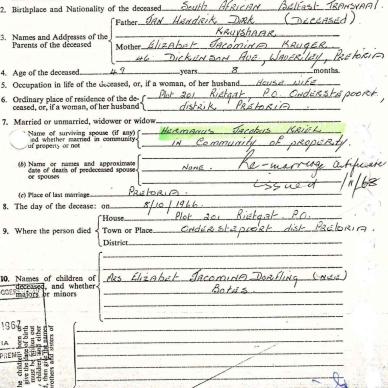 2. Birthplace and Nationality of the deceased South African Belfast Transvaal
Father JAN HENDRIK DIRK (DECEASED)
KRUYSHAAR
3. Names and Addresses of the
Parents of the deceased
Mother ELIZABET JACOMINA KRUGER
46 DICKENSON AVE, WAVERLEY, PRETORIA
4. Age of the deceased 49 years 8 months.
5. Occupation in life of the deceased, or, if a woman, of her husband HOUSE WIFE
6. Ordinary place of residence of the de-
ceased, or, if a woman, of her husband
Plot 201 Rietgat P.O. ONDERSTEPOORT
distrik PRETORIA
7. Married or unmarried, widower or widow
Name of surviving spouse (if any)
and whether married in community
of property or not
HERMANUS JACOBUS KRIEL
IN Community of property.
(b) Name or names and approximate
date of death of predeceased spouse
or spouses
NONE. Re-marriage certificate
issued /11/68
(c) Place of last marriage PRETORIA
8. The day of the decease: on 8/10/1966.
9. Where the person died
House Plot 201 Rietgat P.O.
Town or Place ONDERSTEPOORT dist PRETORIA.
District
10. Names of children of
deceased, and whether
majors or minors
MRS ELIZABET JACOMINA DORFLING (NEE)
BOTES
1967